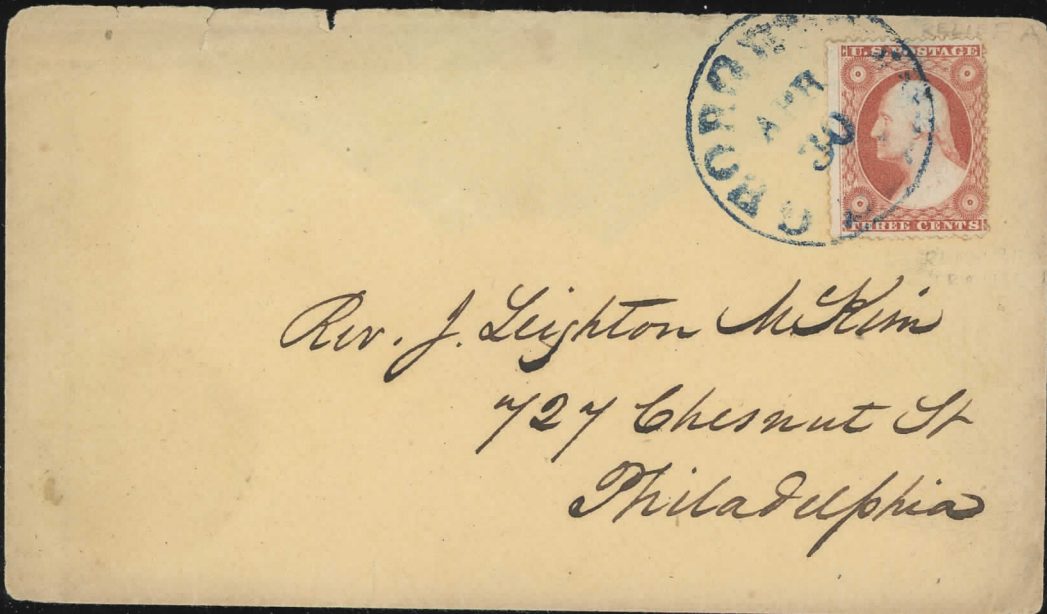 U.S. POSTAGE
APR
30
THREE CENTS
Rev. J. Leighton McKim
727 Chesnut St
Philadelphia